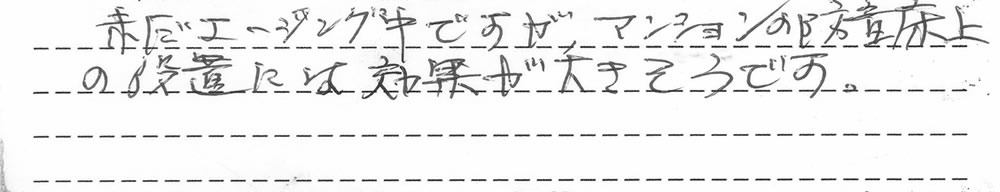 未だエージング中ですが、マンションの防音床上
の設置には効果が大きそうです。